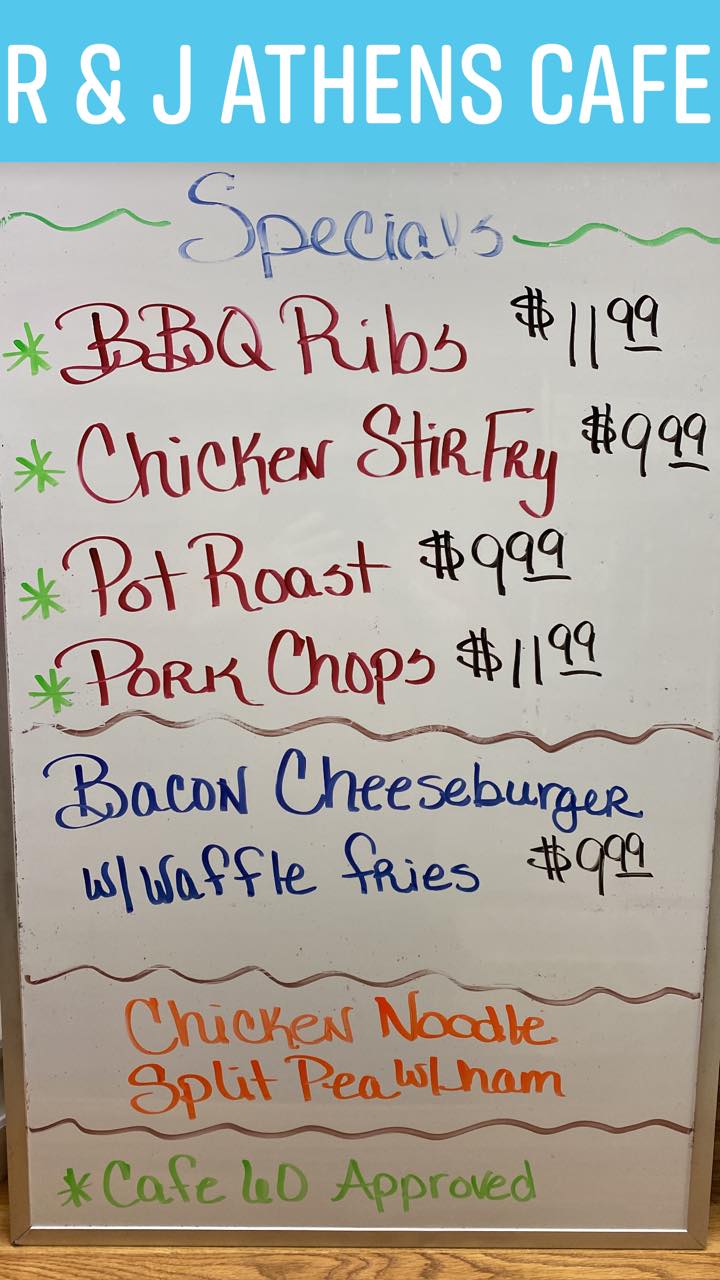 R & J ATHENS CAFE
Specials
* BBQ Ribs $11.99
* Chicken Stir Fry $9.99
* Pot Roast $9.99
* Pork Chops $11.99
Bacon Cheeseburger
w/ Waffle fries $9.99
Chicken Noodle
Split Pea w/ ham
* Cafe 60 Approved